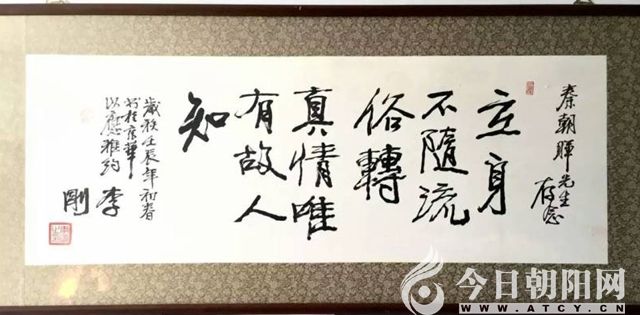 秦朝暉先生
存念
立身
不隨流
俗轉
真情唯
有故人
知
歲在壬辰年初春
於京華
以應雅約 李
剛
今日朝阳网
WWW.ATCY.CN